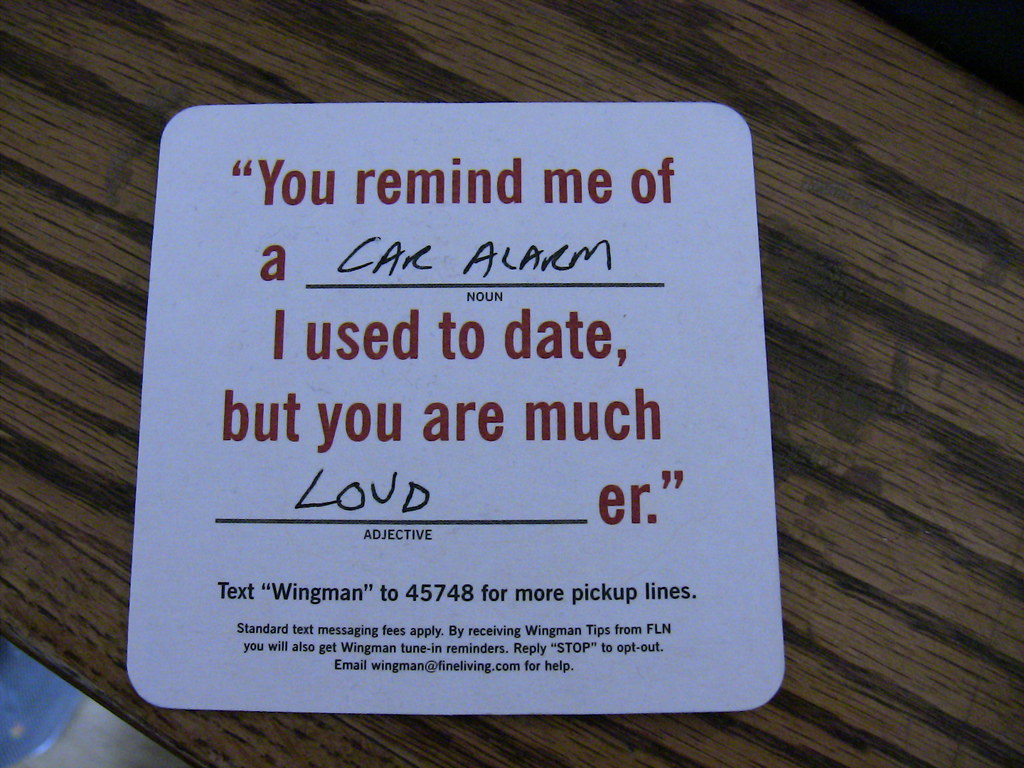 “You remind me of
a CAR ALARM
NOUN
I used to date,
but you are much
LOUD er.”
ADJECTIVE
Text “Wingman” to 45748 for more pickup lines.
Standard text messaging fees apply. By receiving Wingman Tips from FLN
you will also get Wingman tune-in reminders. Reply “STOP” to opt-out.
Email wingman@fineliving.com for help.